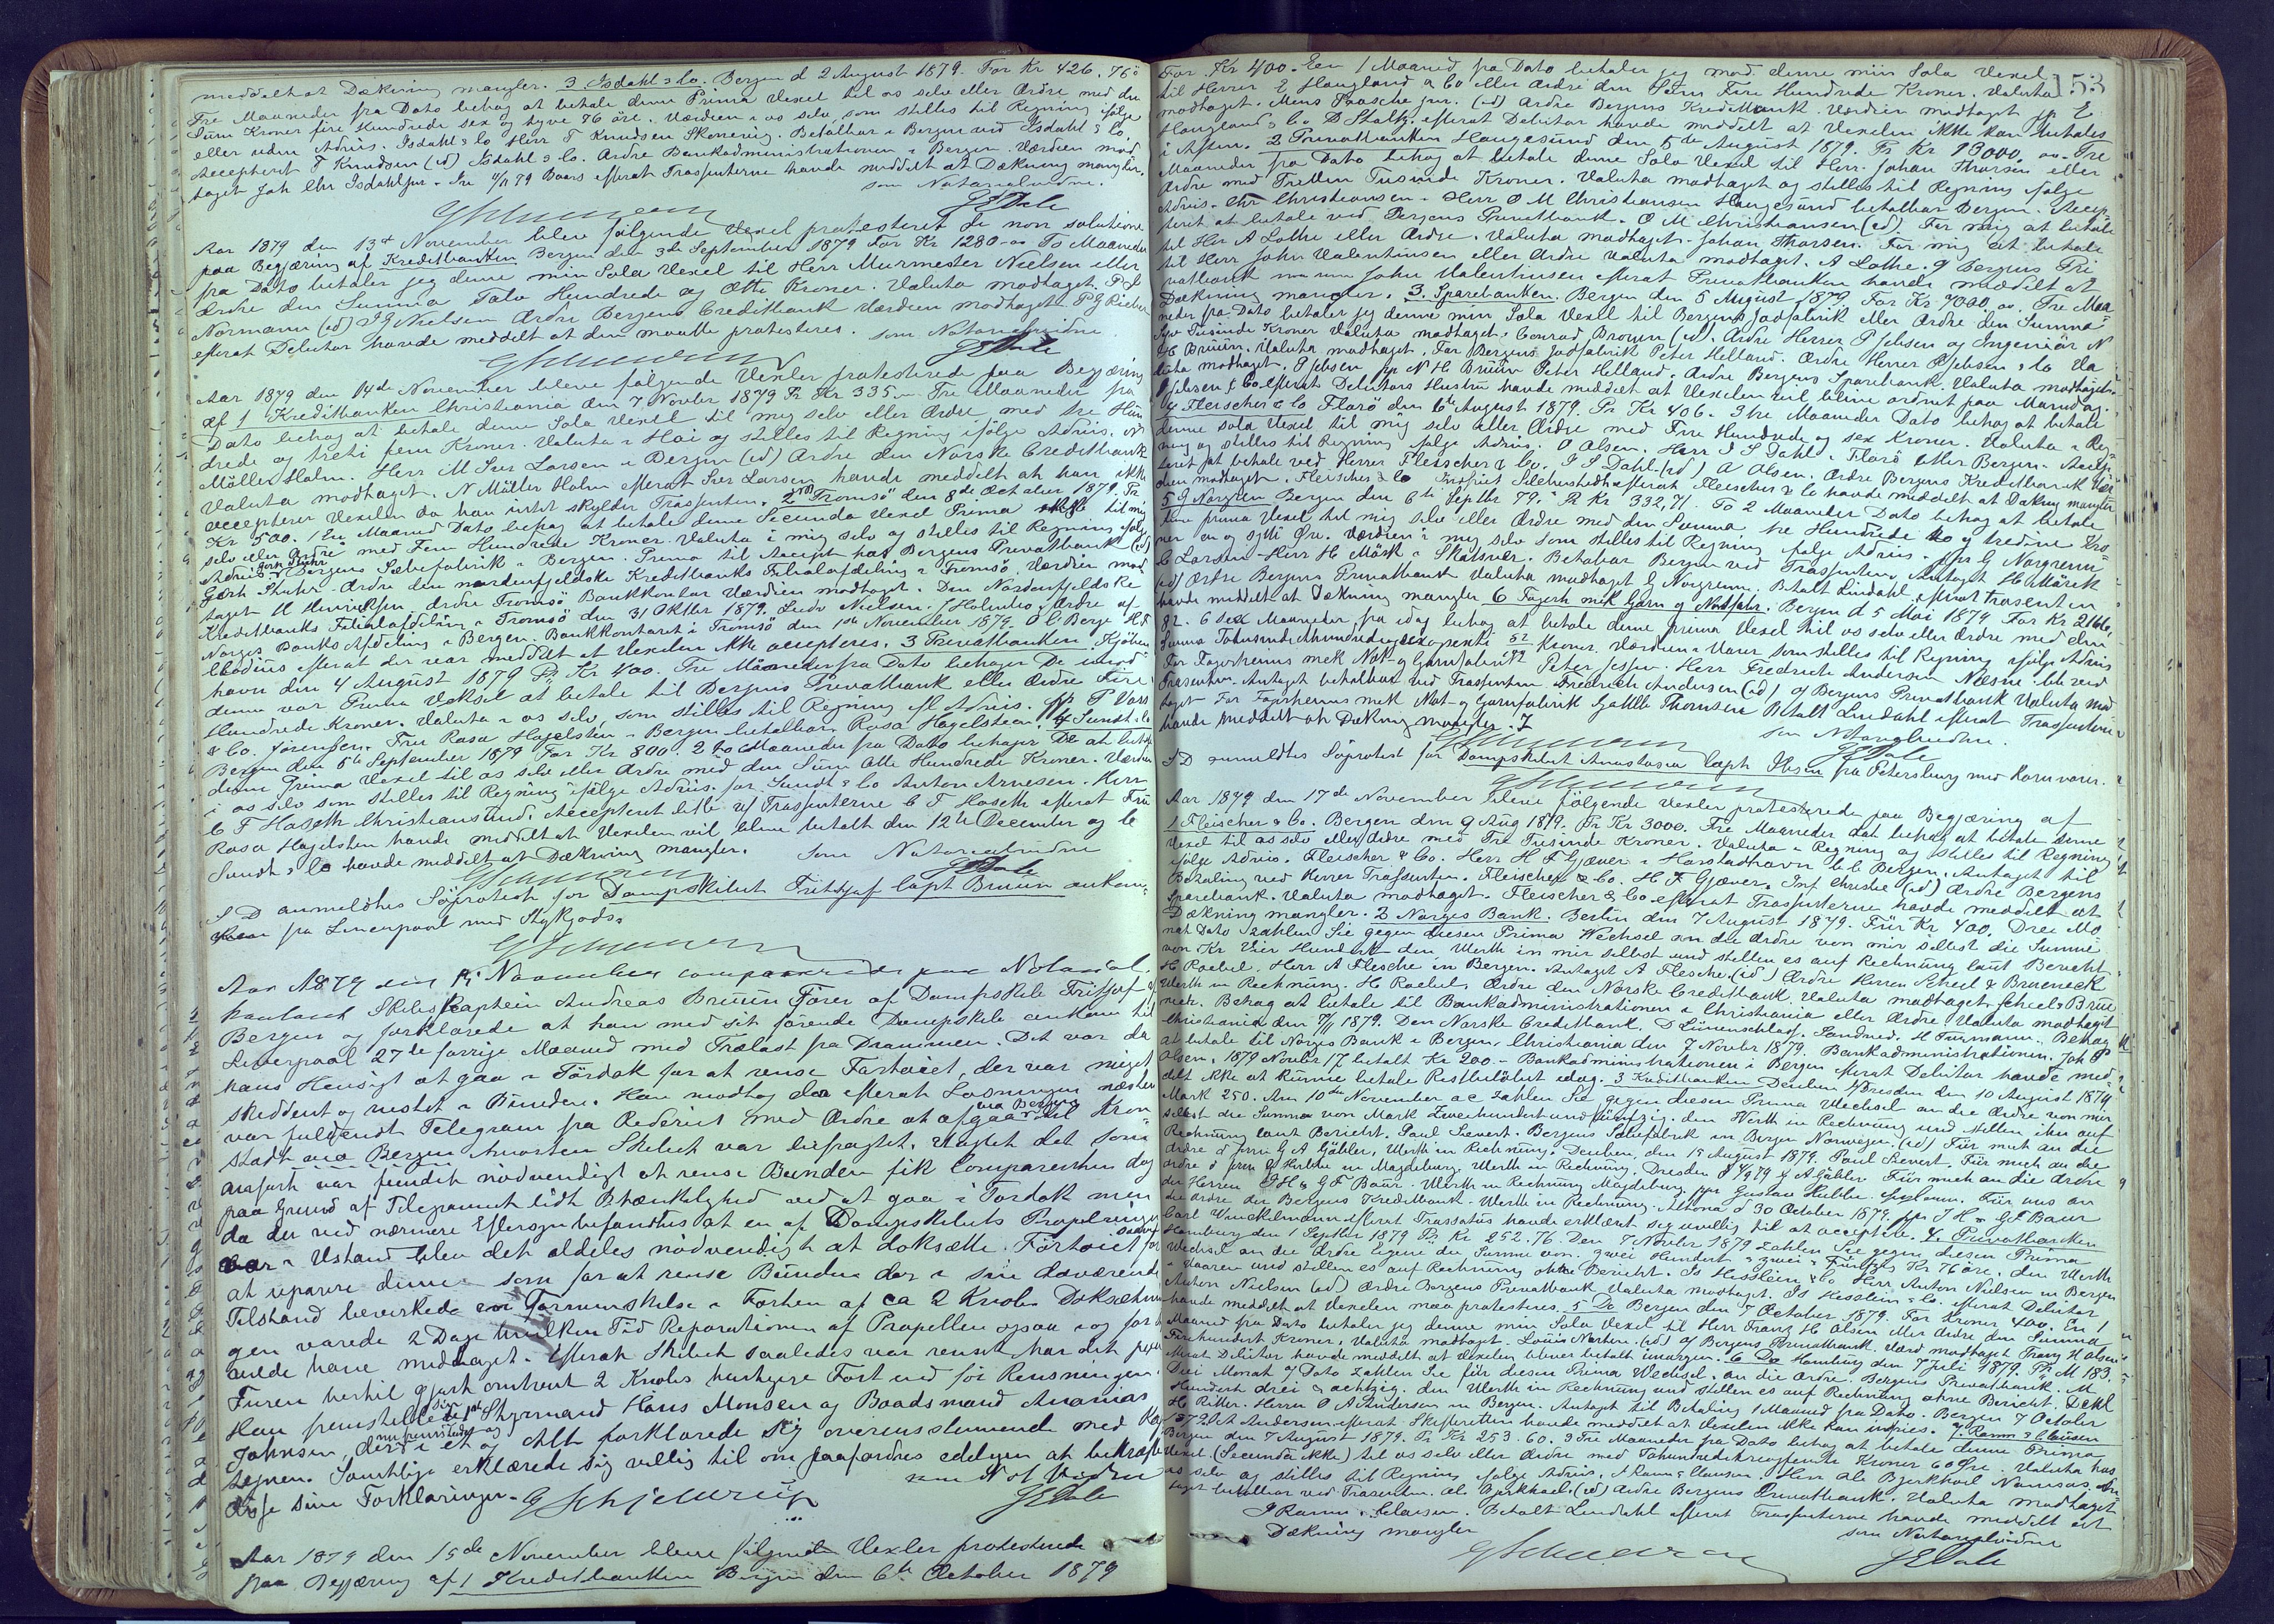 meddelt at Dækning mangler. 3. Isdahl & Co. Bergen d 2 August 1879. For Kr 426. 76 ö
Tre Maaneder fra Dato behag at betale denne Prima Vexel til os selv eller Ordre med den
Sum Kroner fire Hundrede sex og tyve 76 öre. Værdien i os selv, som stilles til Regning ifølge
eller uden Advis. Isdahl & Co Herr T Knudsen Skonevig. Betalbar i Bergen ved Isdahl & Co.
Accepteret T Knudsen (ed) Isdahl & Co. Ordre Bankadministrationen i Bergen. Værdien mod
taget Joh Chr Isdahl jun. efterat Trassenterne havde meddelt at Dækning mangler.
som Notarialvidne.
JEDale
Aar 1879 den 13de November bleve følgende Vexel protesteret de non solutione
paa Begjæring af Kreditbanken Bergen den 3de September 1879 For Kr 1280 - To Maaneder
fra Dato betaler jeg denne min Sola Vexel til Herr Murmester Nielsen eller
Ordre den Summa Tolv Hundrede og Otti Kroner. Valuta modtaget. P
Normann (ed) I G Nielsen Ordre Bergens Creditbank Værdien modtaget
efterat Debitor havde meddelt at den maatte protesteres. som Notarialvidne
JEDale
Aar 1879 den 14de November bleve følgende Vexler protesterede paa Begjæring
af 1 Kreditbanken Christiania den 7 Novbr 1879 Pr Kr 335. Tre Maaneder fra
Dato behag at betale denne Sola Vexel til mig selv eller Ordre med tre Hun
drede og treti fem Kroner. Valuta i Hai og stilles til Regning ifølge Advis. N
Möller Holm. Herr M Iver Larsen i Bergen (ed) Ordre den Norske Creditbank
Valuta modtaget. N Müller Holm efterat Iver Larsen havde meddelt at han ikke
accepterer Vexelen da han intet skylder Trassenten. 2 Tromsö den 8de October 1879. Pr
Kr 500. 1 En Maaned Dato behag at betale denne Secunda Vexel Prima ikke til mig
selv eller Ordre med Fem Hundrede Kroner. Valuta i mig selv og stilles til Regning ifølge
Advis. Bergens Sæbefabrik i Bergen. Prima til Accept hos Bergens Privatbank (ed)
Gerh Stuhr. Ordre den nordenfjeldske Kreditbanks Filialafdeling i Tromsö. Værdien mod
taget M Henriksen, ordre Tromsö Bankkontor Værdien modtaget. Den Nordenfjeldske
Kreditbanks Filialafdeling i Tromsö den 31 Oktbr 1879. Ludv Nielsen. / Holmboe. Ordre af
Norges Banks Afdeling i Bergen. Bankkontoret i Tromsö den 1ste November 1879. O C Berge
efterat der var meddelt at Vexelen ikke accepteres. 3 Privatbanken Kjöben
havn den 4 August 1879 Pr Kr 400. Tre Maaneder fra Dato behager De imod
denne vor Prima Veksel at betale til Bergens Privatbank eller Ordre Fire
Hundrede Kroner. Valuta i os selv, som stilles til Regning efl Advis. pp P Vass
& Co. Jörensen. Fru Rosa Hagelsten i Bergen betalbar. Rosa Hagelsteen. 4 Sundt & Co
Bergen den 5te September 1879 For Kr 800. 2 to Maaneder fra Dato behager De at betale
denne Prima Vexel til os selv eller Ordre med den Sum Otte Hundrede Kroner. Værdien
i os selv som stilles til Regning ifølge Advis. for Sundt & Co Anton Arnesen. Herr
C F Haseth Christiansund. Accepteret C F Haseth efterat Fru
Rosa Hagelsten havde meddelt at Vexelen vil blive betalt den 12te December og C
Sundt & Co havde meddelt at Dækning mangler. som Notarialvidne
JEDale
S D anmeldtes Söprotest for Dampskibet Fritjof Capt Bruun ankom-
fra Liverpool med Stykgods.
Aar 1879 den 15 November comparerede paa Notarial
kontoret Skibskaptein Andreas Bruun Förer af Dampskib Fritjof af
Bergen og forklarede at han med sit förende Dampskib ankom til
Liverpool 27de forrige Maaned med Trælast fra Drammen. Det var da
hans Hensigt at gaa i Tördok for at rense Fartöiet, der var meget
skiddent og rustet i Bunden. Han modtog da efterat Losningen næsten
var fuldendt Telegram fra Rederiet med Ordre at afgaa via Bergen til Kron
stadt via Bergen hvorhen Skibet var befragtet. Uagtet det som
anfört var fundet nödvendigt at rense Bunden fik Comparenten dog
paa Grund af Telegrammet lidt Betænkelighed ved at gaa i Tördok men
da der ved nærmere Eftersyn befandtes at en af Dampskibets Propelvinger
var i Ustand blev det aldeles nödvendigt at doksætte Fartöiet for
at reparere denne som for at rense Bunden der i sin daværende
Tilstand bevirkede en Formindskelse i Farten af ca 2 Knob. Doksætnin
gen varede 2 Dage hvilken Tid Reparationen af Propellen ogsaa i og for
vilde have medtaget. Efterat Skibet saaledes var renset har det paa
Turen hertil gjort omtrent 2 Knobs hurtigere Fart end för Rensningen.
Han fremstillede sin Styrmand Hans Monsen og Baadsmand Ananias
Johnsen, der i et og Alt forklarede sig overensstemmende med Kap
teinen. Samtlige erklærede sig villig til om paafordres edelig at bekræfte
disse sine Forklaringer. G Schjelderup
som Not Vidne
JEDale
Aar 1879 den 15de November bleve følgende Vexler protesterede
paa Begjæring af 1 Kreditbanken Bergen den 6te October 1879
53
For Kr 400. Een 1 Maaned fra Dato betaler jeg mod denne min Sola Vexel
til Herrer E Haugland & Co eller Ordre den Sum Fire Hundrede Kroner. Valuta
modtaget. Mons Paasche jun. (ed) Ordre Bergens Kreditbank. Værdien modtaget pp E
Haugland & Co D Stalk. efterat Debitor havde meddelt at Vexelen ikke kan betales
i Aften. 2 Privatbanken Haugesund den 5te August 1879. Fr Kr 13000. oo. Tre
Maaneder fra Dato behag at betale denne Sola Vexel til Herr Johan Thorsen eller
Ordre med Tretten Tusinde Kroner. Valuta modtaget og stilles til Regning ifølge
Advis. Chr Christiansen. Herr O M Christiansen Haugesund betalbar Bergen. Accep
teret at betale ved Bergens Privatbank. O M Christiansen (ed). For mig at betale
til Herr A Lothe eller Ordre. Valuta modtaget. Johan Thorsen. For mig at betale
til Herr John Valentinsen eller Ordre Valuta modtaget. A Lothe. Bergens Pri
vatbank John Valentinsen efterat Privatbanken havde meddelt at
Dækning mangler. 3. Sparebanken. Bergen den 5 August 1879. For Kr 7000. oo. Tre Maa
neder fra Dato betaler jeg denne min Sola Vexel til Bergens Jodfabrik eller Ordre den Summa
Syv Tusinde Kroner Valuta modtaget. Conrad Brown (ed). Ordre Herrer P Jebsen og Ingeniör N
H Bruun. Valuta modtaget. For Bergens Jodfabrik Peter Helland. Ordre Herrer P Jebsen & Co Va
luta modtaget. P Jebsen pp N H Bruun Peter Helland. Ordre Bergens Sparebank. Valuta modtaget.
P Jebsen & Co. efterat Debitors Hustru havde meddelt at Vexelen vil blive ordnet paa Mandag.
4 Fleischer & Co Florö den 6te August 1879. Pr Kr 406. 3 tre Maaneder Dato behag at betale
denne sola Vexel til mig selv eller Ordre med Fire Hundrede og sex Kroner. Valuta i Reg
ning og stilles til Regning ifølge Advis. O Olsen. Herr J S Dahl. Florö eller Bergen. Accep
teret at betale ved Herrer Fleischer & Co. J S Dahl. (ed) A Olsen. Ordre Bergens Kreditbank Vær
dien modtaget. Fleischer & Co efterat Fleischer & Co havde meddelt at Dækning mangler
5 G Norgreen Bergen den 6te Septbr 79. Pr Kr 332,71. To 2 Maaneder Dato behag at betale
denne prima Vexel til mig selv eller Ordre med den Summa tre Hundrede to og tredive Kro
ner en og sytti Öre. Værdien i mig selv som stilles til Regning ifølge Advis. ppr G Norgreen
C Larsen. Herr H Mörk i Skatsvær. Betalbar Bergen ved Trassenten. Antaget H Mörk
(ed) Ordre Bergens Privatbank Valuta modtaget G Norgreen. Betalt Lindahl. efterat Trasenten
havde meddelt at Dækning mangler 6 Fagerh mek Garn og Notfabr. Bergen d 5 Mai 1879 For Kr 2166,
82. 6 sex Maaneder fra idag behag at betale denne prima Vexel til os selv eller Ordre med den
Summa Totusindethundredeogsexogsexti 82 Kroner. Værdien i Varer som stilles til Regning ifølge Advis
For Fagerheims mek Not- og Garnfabrik Peter Jessen. Herr Fredrich Andersen Næsne bet ved
Trasenten. Antaget betalbar ved Trassenten Fredrich Andersen (ed) og Bergens Privatbank Valuta mod
taget For Fagerheims mek Not og Garnfabrik Gottlb Thomsen Betalt Lindahl efterat Trassenterne
havde meddelt at Dækning mangler.
som Notarialvidne.
JEDale
S D anmeldtes Söprotest for Dampskibet Anastasia Capt Ibsen fra Petersburg med Kornvarer.
Aar 1879 den 17de November bleve følgende Vexler protesterede paa Begjæring af
1 Fleischer & Co. Bergen den 9 Aug 1879. Pr Kr 3000. Tre Maaneder dat behag at betale denne
Vexel til os selv eller Ordre med Tre Tusinde Kroner. Valuta i Regning og stilles til Regning
ifølge Advis. Fleischer & Co. Herr H F Gjæver i Harstadhavn bet Bergen. Antaget til
Betaling ved Herrer Trassenten. Fleischer & Co. H F Gjæver. Inf Christie (ed) Ordre Bergens
Sparebank. Valuta modtaget. Fleischer & Co. efterat Trassenterne havde meddelt at
Dækning mangler. 2 Norges Bank. Berlin den 7 August 1879. Für Kr 400. Drei Mo
nat Dato zahlen Sie gegen diesen Prima Wechsel an die Ordre von mir selbst die Summe
von Kr Vier Hundert den Werth in mir selbst und stellen es auf Rechnung laut Bericht.
H Roebel. Herr A Flesche in Bergen. Antaget A Flesche. (ed) Ordre Herren Scheel & Brueneck
Werth in Rechnung. H Roebel. Ordre den Norske Creditbank. Valuta modtaget. Scheel & Brue
neck. Behag at betale til Bankadministrationen i Christiania eller Ordre Valuta modtaget
Christiania den 7/11 1879. Den Norske Creditbank. D Lünenschloss. Sandved. H Thurmann. Behag
at betale til Norges Bank i Bergen. Christiania den 7 Novbr 1879. Bankadministrationen. Joh P
Olsen. 1879 Novbr 17 betalt Kr 200. - Bankadministrationen i Bergen efterat Debitor havde med
delt ikke at kunne betale Restbelöbet idag. 3 Kreditbanken Deuben b/Dresden den 10 August 1879
Mark 250. Am 10den November ac zahlen Sie gegen diesen Prima Wechsel an die Ordre von mir
selbst die Summa von Mark Zweihundertundfünfzig den Werth in Rechnung und stellen ihn auf
Rechnung laut Bericht. Paul Sievert. Bergens Sæbefabrik in Bergen Norwegen. (ed) Für mich an die
Ordre d Herrn G A Gäbler, Werth in Rechnung. Deuben, den 15 August 1879. Paul Sievert. Für mich an die
ordre d Herrn G Hubbe in Magdeburg. Werth in Rechnung. Dresden d 4/9 79 G A Gäbler Für mich an die Ordre
der Herren J H & G F Baur. Werth in Rechnung Magdeburg. ppr Gustav Hubbe. Für uns an
die Ordre der Bergens Kreditbank. Werth in Rechnung. Altona d 30 October 1879. ppr J H & G F Baur
Carl Winckelmann efterat Trassatus havde erklæret sig uvillig til at acceptere. 4. Privatbanken
Hamburg den 1 Septbr 1879 Pr Kr 252. 76. Den 7 Novbr 1879 zahlen Sie gegen diesen Prima
Wechsel an die Ordre Eigene die Summe von Zwei Hundert & zwei & Fünfzig Kr 76 öre. den Werth
in Waaren und stellen es auf Rechnung ohne Bericht. Is Hesslein & Co Herr Anton Nielsen in Bergen
Anton Nielsen (ed) Ordre Bergens Privatbank Valuta modtaget. Is Hesslein & Co. efterat Debitor
havde meddelt at Vexelen maa protesteres. 5 Do Bergen den 7 October 1879. For Kroner 400. En 1
Maaned fra Dato betaler jeg denne min Sola Vexel til Herr Franz H Olsen eller Ordre den Summa
Firehundrede Kroner. Valuta modtaget. Louis Norhen. (ed) og Bergens Privatbank. Værd modtaget Franz H Olsen
efterat Debitor havde meddelt at Vexelen bliver betalt imorgen. 6 Do Hamburg den 7 Juli 1879. Pr M 183.
Drei Monat a/Dato zahlen Sie für diesen Prima Wechsel an die Ordre. Bergens Privatbank. M
Hundert drei & achtzig. den Werth in Rechnung und stellen es auf Rechnung ohne Bericht.
H Ritter. Herrn O A Andersen in Bergen. Antaget til Betaling 1 Maaned fra Dato. Bergen 7 October
1879 O A Andersen efterat Skifteretten havde meddelt at Vexelen ikke kan indfries. 7. Ramm & Clausen
Bergen den 7 August 1879. Pr Kr 253. 60. 3 Tre Maaneder fra Dato behag at betale denne Prima
Vexel (Secunda ikke) til os selv eller Ordre med Tohundredetreogfemti Kroner 60 Öre. Valuta hos
os selv og stilles til Regning ifølge Advis. J Ramm & Clausen. Herr Ole Bjerkhoel Namsos. An
taget betalbar ved Trasenten. Ole Bjerkhoel. (ed) Ordre Bergens Privatbank. Valuta modtaget
J Ramm & Clausen. Betalt Lindahl efterat Trassenterne havde meddelt at
Dækning mangler
som Notarialvidne
JEDale